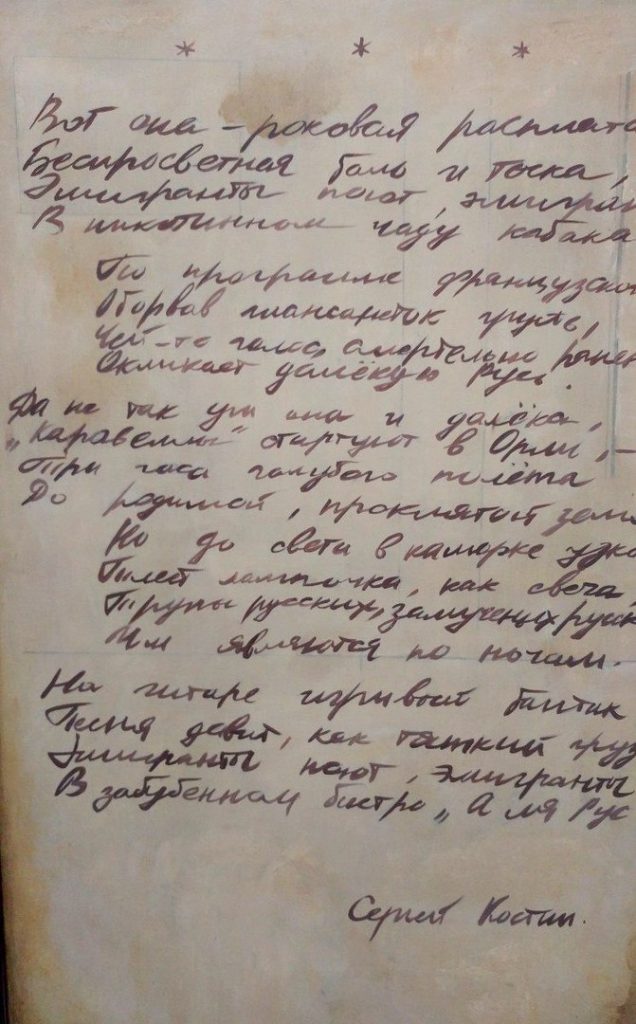 * * *
Вот она – роковая расплата
Беспросветная боль и тоска,
Эмигранты поют, эмигран
В никотинном чаду кабака
По программе французског
Оборвав шансонеток грусть,
Чей-то голос, смертельно ранен
Окликает далёкую Русь.
Да не так уж она и далёка,
„Каравеллы" стартуют в Орли, –
Три часа голубого полёта
До родимой, проклятой земл
Но до света в каморке узко
Тлеет лампочка, как свеча.
Трупы русских, замученых русс
Им являются по ночам.
На гитаре игривый бантик
Песня давит, как тяжкий груз
Эмигранты поют, эмигранты
В забубенном бистро „А ля Рус
Сергей Костин.